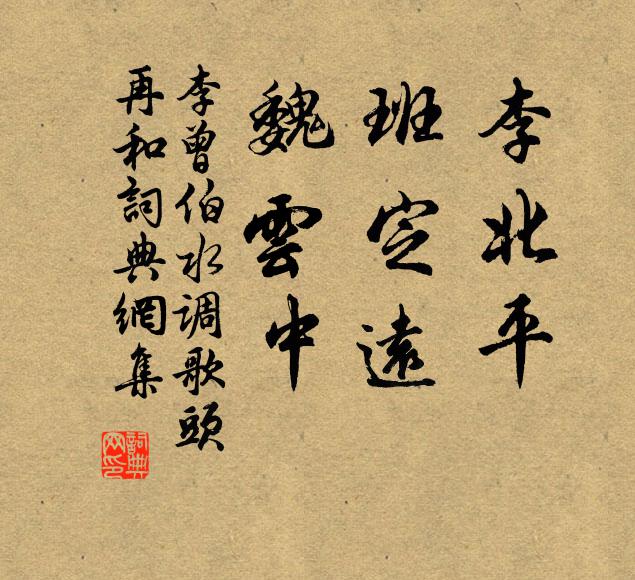 李北平
班定遠
魏雲中
李曾伯水调歌頭
再和詞典網集
詞典网印